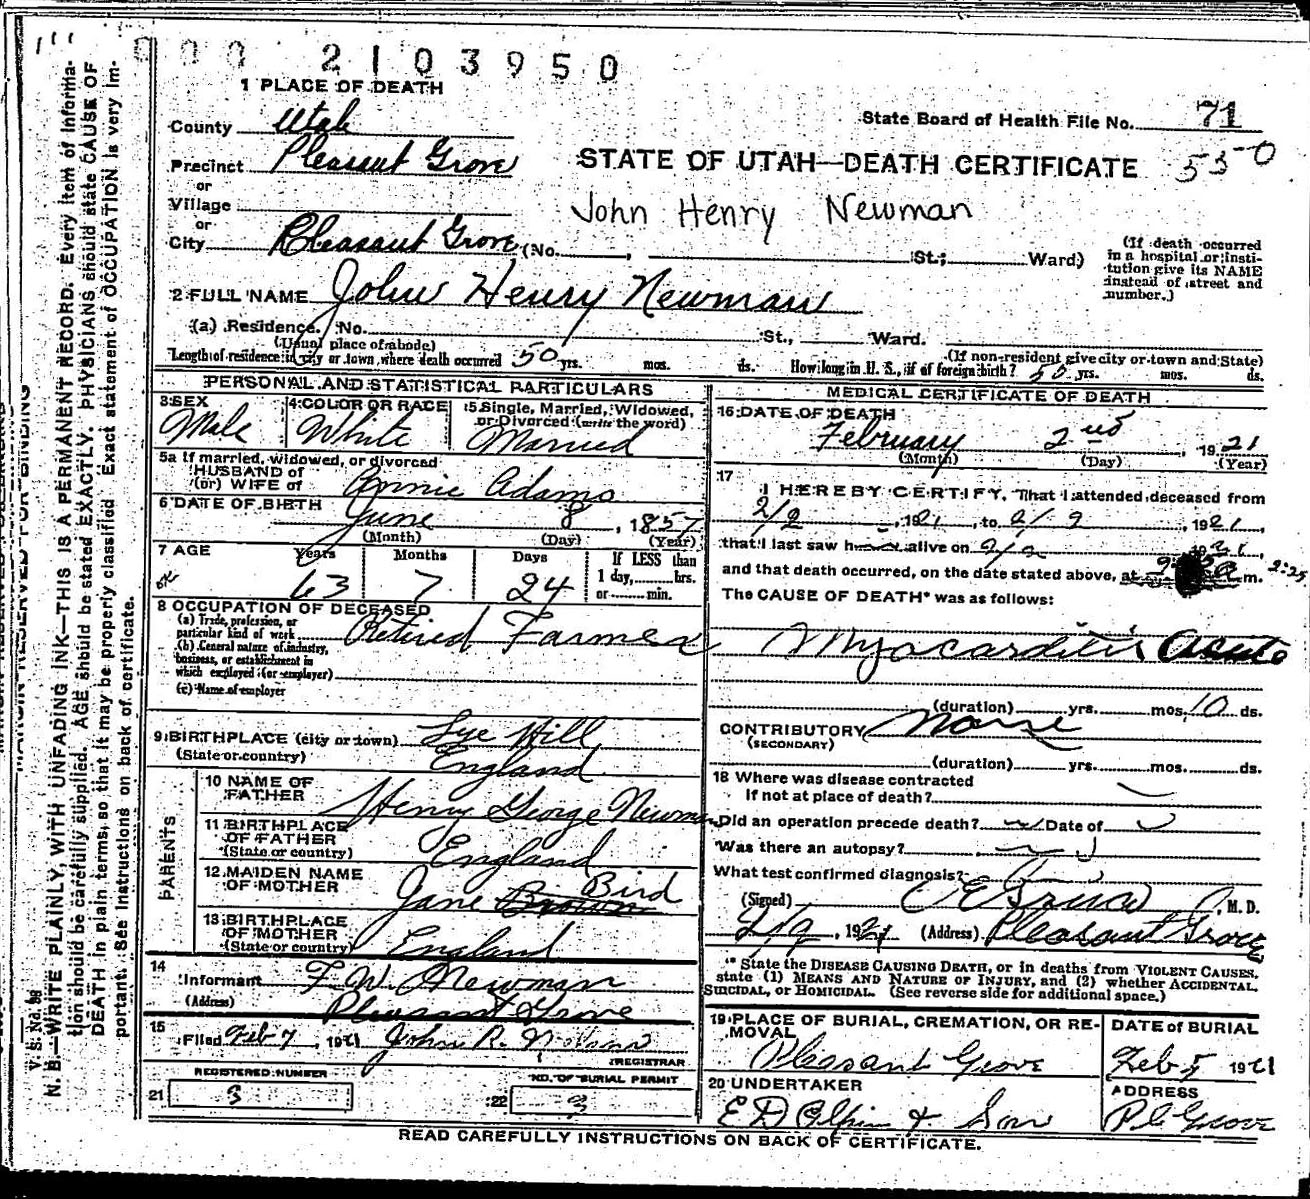 2103950
1 PLACE OF DEATH
County Utah
State Board of Health File No. 71
Precinct Pleasant Grove
STATE OF UTAH—DEATH CERTIFICATE 550
or
Village
John Henry Newman
or
City Pleasant Grove (No. , St.; Ward)
(If death occurred in a hospital or insti-
tution give its NAME
instead of street and
number.)
2 FULL NAME John Henry Newman
(a) Residence. No. St., Ward.
(Usual place of abode) (If non-resident give city or town and State)
Length of residence in city or town where death occurred 50 yrs. mos. ds. How long in U. S., if of foreign birth? 50 yrs. mos. ds.
PERSONAL AND STATISTICAL PARTICULARS
3 SEX Male
4 COLOR OR RACE White
5 Single, Married, Widowed,
or Divorced (write the word)
Married
5a If married, widowed, or divorced
HUSBAND of
(or) WIFE of Annie Adams
6 DATE OF BIRTH June 8, 1857
(Month) (Day) (Year)
7 AGE Years Months Days If LESS than
1 day, hrs.
or min.
63 7 24
8 OCCUPATION OF DECEASED
(a) Trade, profession, or
particular kind of work Retired Farmer
(b) General nature of industry,
business, or establishment in
which employed (or employer)
(c) Name of employer
9 BIRTHPLACE (city or town) Lye Hill
(State or country) England
PARENTS
10 NAME OF
FATHER Henry George Newman
11 BIRTHPLACE
OF FATHER
(State or country) England
12 MAIDEN NAME
OF MOTHER Jane Brown Bird
13 BIRTHPLACE
OF MOTHER
(State or country) England
14
Informant F. W. Newman
(Address) Pleasant Grove
15
Filed Feb 7, 1921 John R.
REGISTRAR
REGISTERED NUMBER
21 3
NO. OF BURIAL PERMIT
22 3
MEDICAL CERTIFICATE OF DEATH
16 DATE OF DEATH
February 2nd, 1921
(Month) (Day) (Year)
17
I HEREBY CERTIFY, That I attended deceased from
2/2, 1921, to 2/2, 1921,
that I last saw h alive on 2/2 1921,
and that death occurred, on the date stated above, at m. 2:25
The CAUSE OF DEATH* was as follows:
Myocarditis Acute
(duration) yrs. mos. 10 ds.
CONTRIBUTORY None
(SECONDARY)
(duration) yrs. mos. ds.
18 Where was disease contracted
If not at place of death?
Did an operation precede death? Date of
Was there an autopsy?
What test confirmed diagnosis?
(Signed) , M. D.
, 1921 (Address) Pleasant Grove
* State the DISEASE CAUSING DEATH, or in deaths from VIOLENT CAUSES,
state (1) MEANS AND NATURE OF INJURY, and (2) whether ACCIDENTAL,
SUICIDAL, or HOMICIDAL. (See reverse side for additional space.)
19 PLACE OF BURIAL, CREMATION, OR RE-
MOVAL
Pleasant Grove
DATE of BURIAL
Feb 5 1921
20 UNDERTAKER
E D Olpin & Son
ADDRESS
Pl Grove
READ CAREFULLY INSTRUCTIONS ON BACK OF CERTIFICATE.
V. S. No. 98
MARGIN RESERVED FOR BINDING
N. B.—WRITE PLAINLY, WITH UNFADING INK—THIS IS A PERMANENT RECORD. Every item of informa-
tion should be carefully supplied. AGE should be stated EXACTLY. PHYSICIANS should state CAUSE OF
DEATH in plain terms, so that it may be properly classified. Exact statement of OCCUPATION is very im-
portant. See instructions on back of certificate.